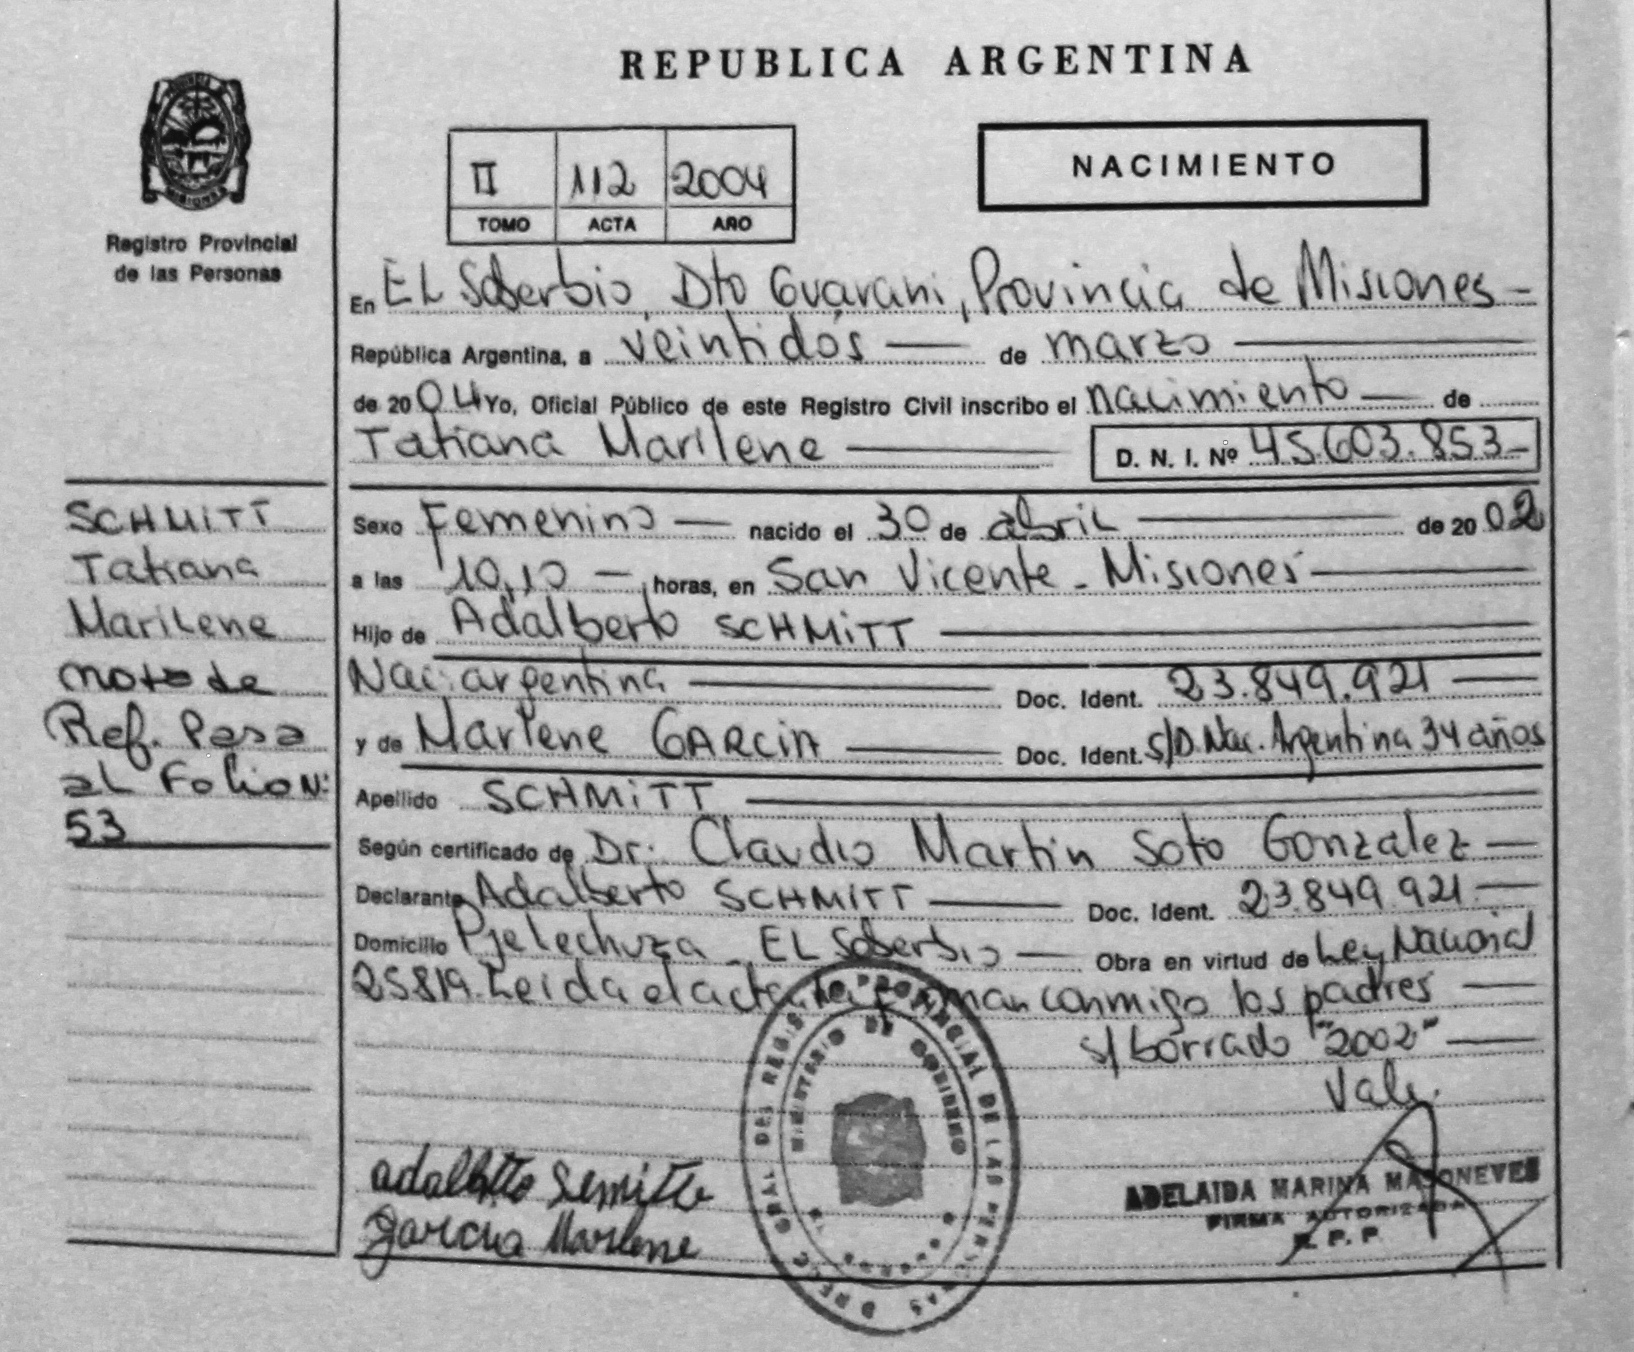 REPUBLICA ARGENTINA
MISIONES
Registro Provincial
de las Personas
II 112 2004
TOMO ACTA AÑO
NACIMIENTO
En EL Soberbio, Dto Guarani, Provincia de Misiones -
República Argentina, a veintidós — de marzo —
de 2004 Yo, Oficial Público de este Registro Civil inscribo el nacimiento — de
Tatiana Marilene — D. N. I. Nº 45.603.853-
SCHMITT
Tatiana
Marilene
nota de
Ref. Pasa
al Folio Nº
53
Sexo Femenino — nacido el 30 de abril — de 2002
a las 10,10 — horas, en San Vicente - Misiones —
Hijo de Adalberto SCHMITT —
Nac. argentina — Doc. Ident. 23.849.921 —
y de Marlene GARCIA — Doc. Ident. S/D. Nac. Argentina 34 años
Apellido SCHMITT —
Según certificado de Dr. Claudio Martin Soto Gonzalez —
Declarante Adalberto SCHMITT — Doc. Ident. 23.849.921 —
Domicilio Pje Lechuza - EL Soberbio — Obra en virtud de Ley Nacional
25819. Leida el acta la firman conmigo los padres —
s/ borrado "2002" —
Vale.
adalberto
garcia Marlene
DIREC. GRAL. DEL REGISTRO PROVINCIAL DE LAS PERSONAS
MINISTERIO DE GOBIERNO
ADELAIDA MARINA MASONEVES
FIRMA AUTORIZADA
R. P. P.